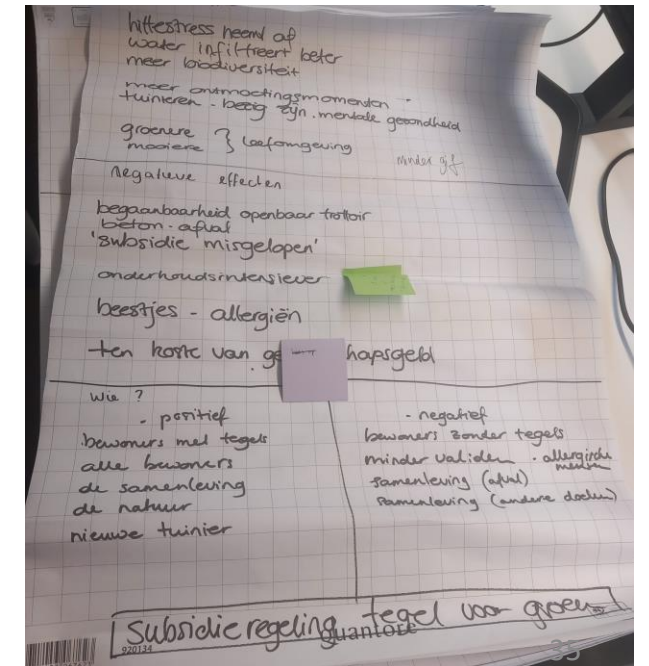 hittestress neemt af
water infiltreert beter
meer biodiversiteit
meer ontmoetingsmomenten
tuinieren - bezig zijn . mentale gezondheid
groenere } leefomgeving
mooiere
minder
negatieve effecten
begaanbaarheid openbaar trottoir
beton - afval
'subsidie misgelopen'
onderhoudsintensiever
beestjes - allergiën
ten koste van ge hapsgeld
wie ?
- positief
bewoners met tegels
alle bewoners
de samenleving
de natuur
nieuwe tuinier
- negatief
bewoners zonder tegels
minder validen . allergische mensen
samenleving (afval)
samenleving (andere doelen)
Subsidieregeling tegel voor groen
quantore
920134
35